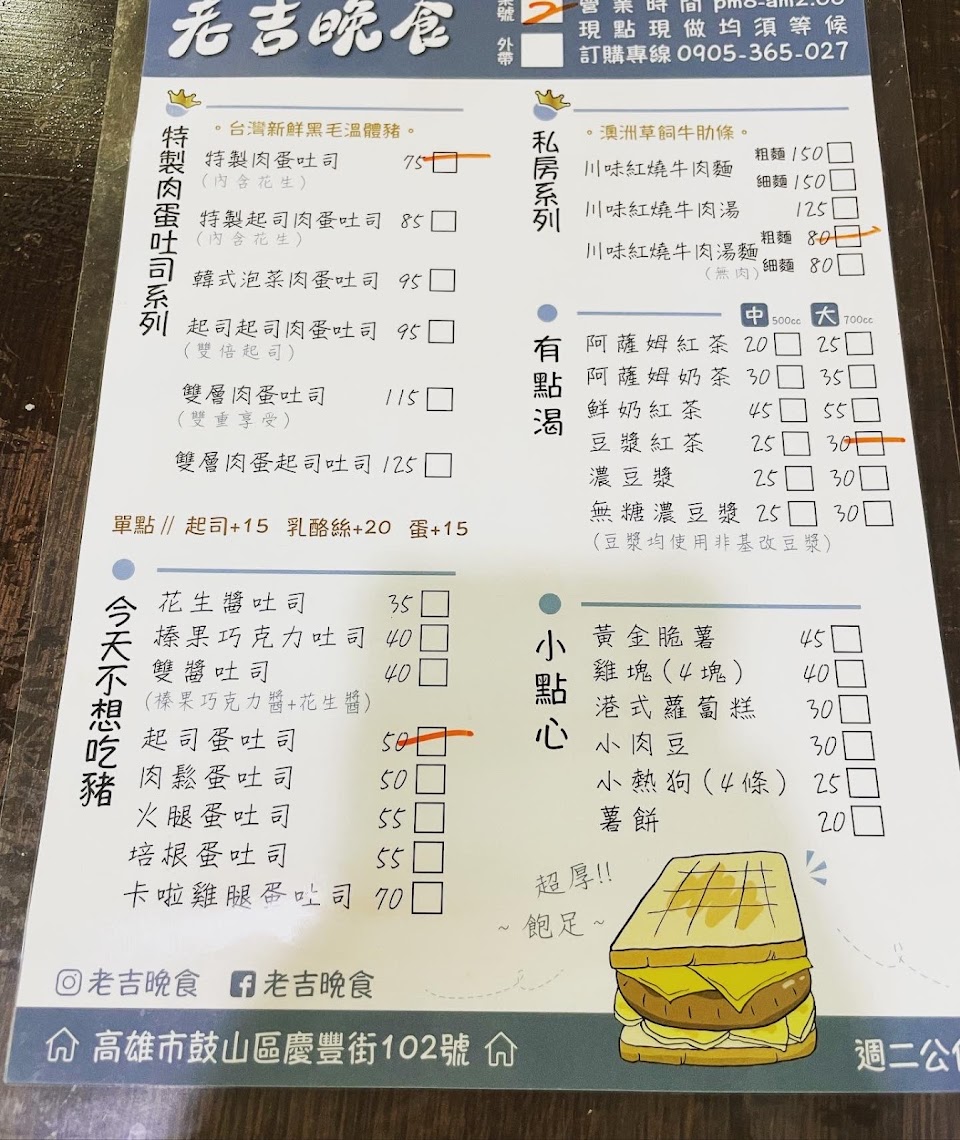 老吉晚食
桌號 2
外帶
營業時間 pm8-am2:00
現點現做均須等候
訂購專線 0905-365-027
特製肉蛋吐司系列
。台灣新鮮黑毛溫體豬。
特製肉蛋吐司 75
(內含花生)
特製起司肉蛋吐司 85
(內含花生)
韓式泡菜肉蛋吐司 95
起司起司肉蛋吐司 95
(雙倍起司)
雙層肉蛋吐司 115
(雙重享受)
雙層肉蛋起司吐司 125
單點// 起司+15 乳酪絲+20 蛋+15
今天不想吃豬
花生醬吐司 35
榛果巧克力吐司 40
雙醬吐司 40
(榛果巧克力醬+花生醬)
起司蛋吐司 50
肉鬆蛋吐司 50
火腿蛋吐司 55
培根蛋吐司 55
卡啦雞腿蛋吐司 70
私房系列
。澳洲草飼牛肋條。
川味紅燒牛肉麵 粗麵 150
細麵 150
川味紅燒牛肉湯 125
川味紅燒牛肉湯麵 粗麵 80
(無肉) 細麵 80
有點渴
中 500cc 大 700cc
阿薩姆紅茶 20 25
阿薩姆奶茶 30 35
鮮奶紅茶 45 55
豆漿紅茶 25 30
濃豆漿 25 30
無糖濃豆漿 25 30
(豆漿均使用非基改豆漿)
小點心
黃金脆薯 45
雞塊(4塊) 40
港式蘿蔔糕 30
小肉豆 30
小熱狗(4條) 25
薯餅 20
超厚!!
~飽足~
老吉晚食 老吉晚食
高雄市鼓山區慶豐街102號
週二公休